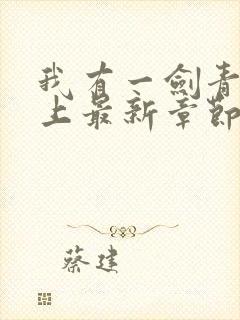 我有一剑青
上最新章节
蔡建